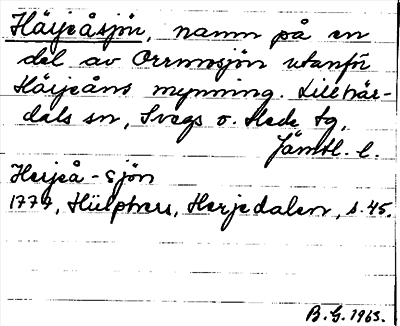 Härjeåsjön, namn på en
del av Orrmosjön utanför
Härjeåns mynning. Lillhär-
dals sn, Svegs o. Hede tg,
Jämtl. l.
Herjeå-Sjön
1777, Hülphers, Herjedalen, s. 45.
B. G. 1963.